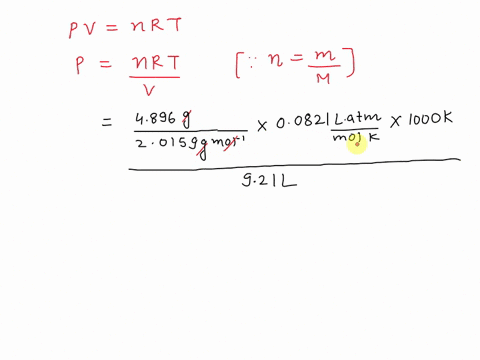 PV = nRT
P = nRT/V [∵ n = m/M]
= 4.896 g / 2.0159 g mol⁻¹ × 0.0821 L.atm / mol K × 1000K
9.21L